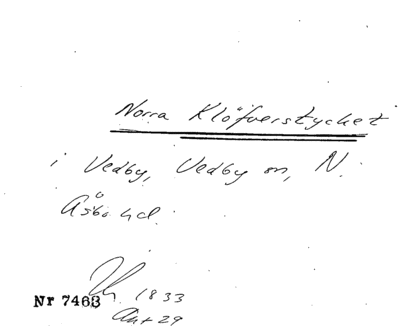 Norra Klöfverstycket
i Vedby, Vedby sn, N.
Åsbo hd.
Nr 7463 1833
Akt 29